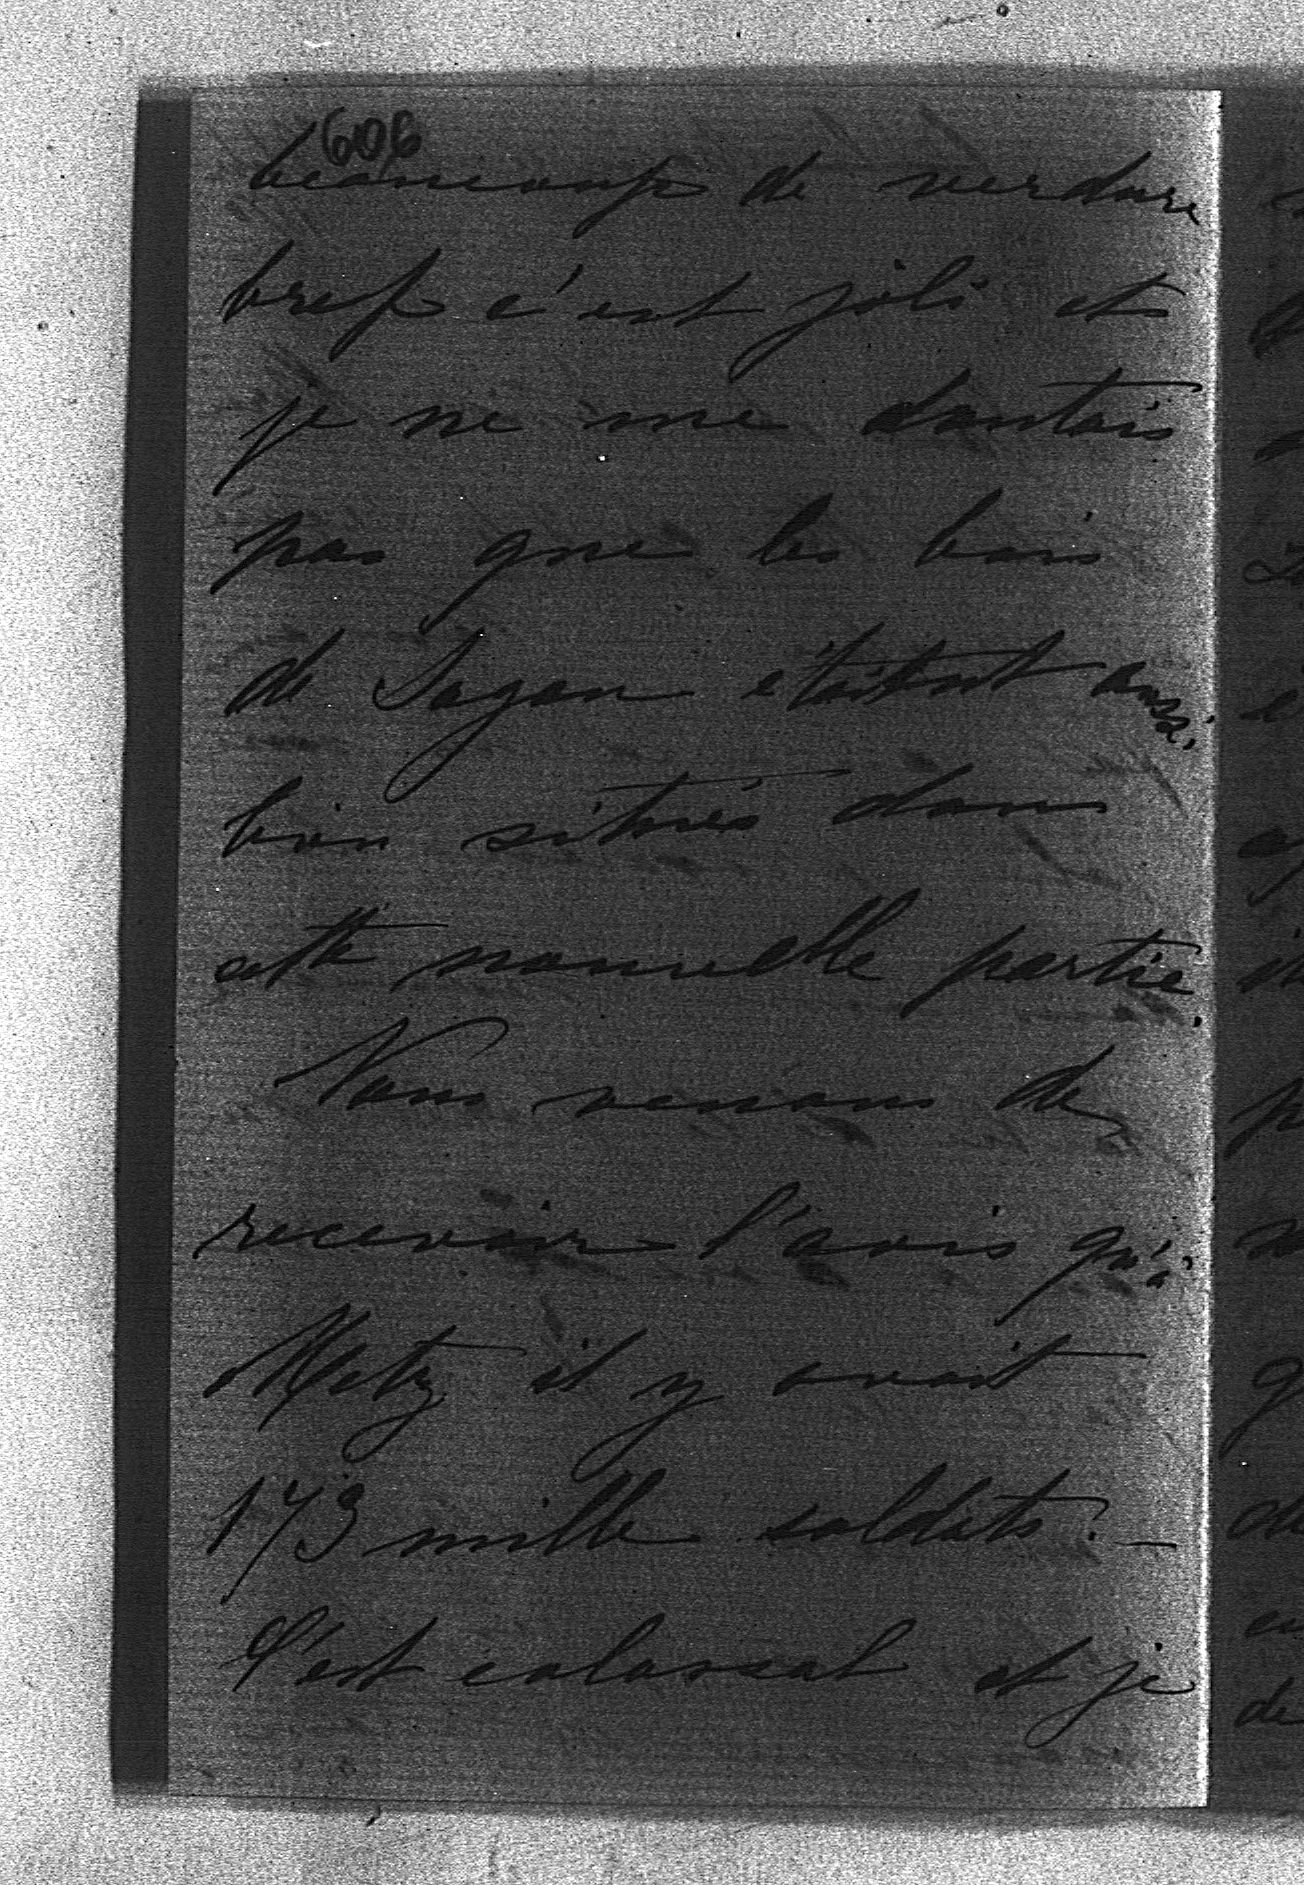 606
beaucoup de verdure
bref c'est joli et
je ne me doutais
pas que les bois
de Sagan étaient aussi
bien situés dans
cette nouvelle partie.
Nous venons de
recevoir l'avis qu'à
Metz il y avait
173 mille soldats. —
C'est colossal et je